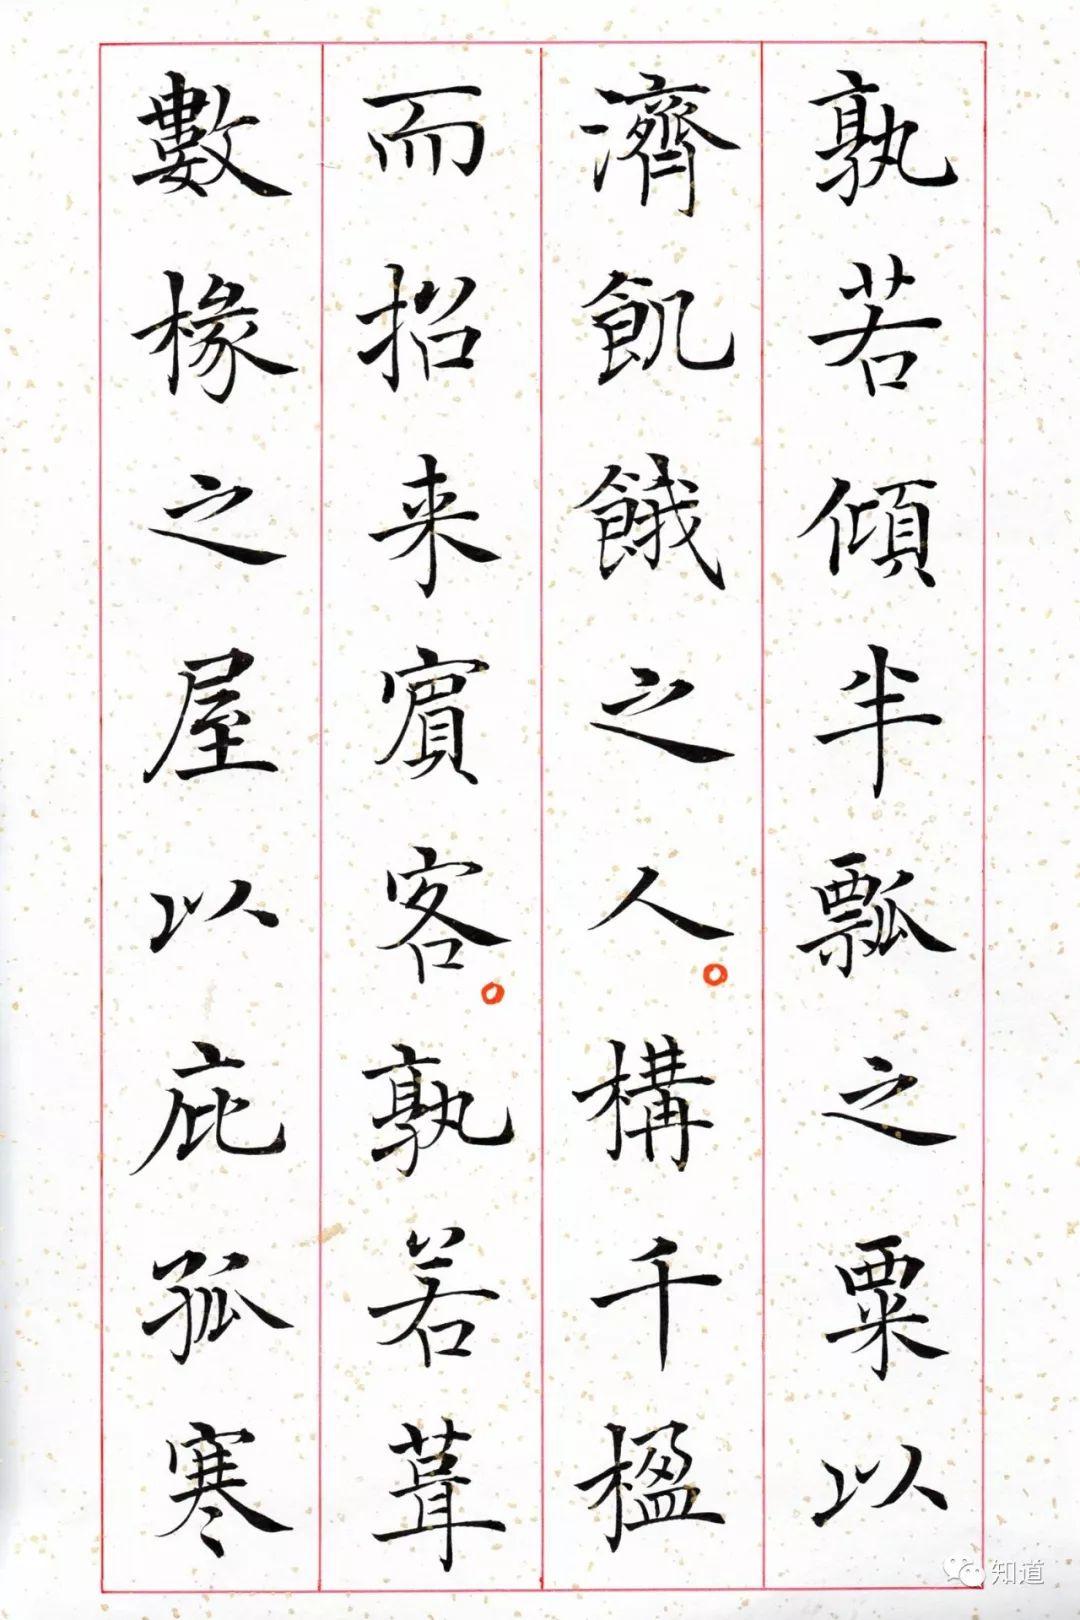 孰若傾半瓢之粟以
濟飢餓之人。構千楹
而招来賓客。孰若葺
數椽之屋以庇孤寒
知道